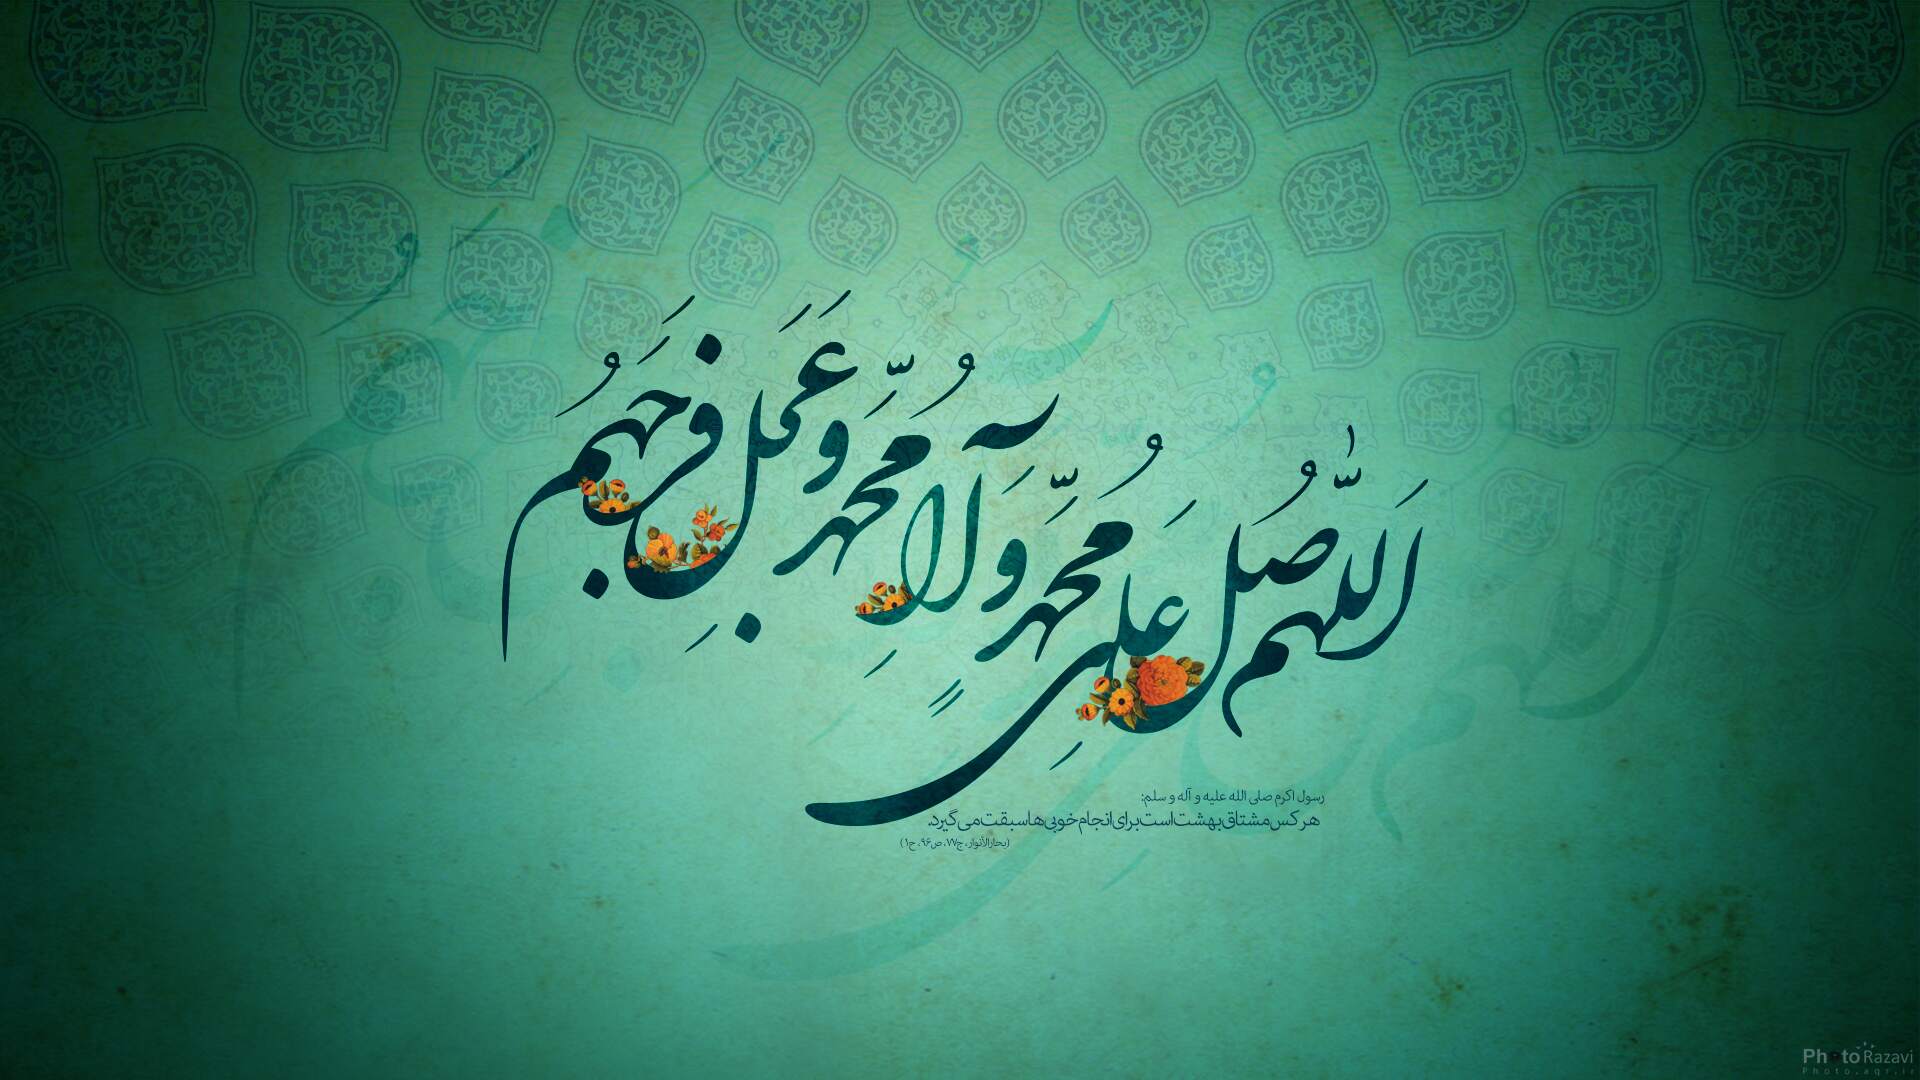 اَللّٰهُمَّ صَلِّ عَلی مُحَمَّدٍ وَ آلِ مُحَمَّد وَ عَجِّل فَرَجَهُم
رسول اکرم صلی الله علیه و آله و سلم:
هر کس مشتاق بهشت است برای انجام خوبی‌ها سبقت می‌گیرد.
(بحارالأنوار، ج۷۷، ص۹۶، ح۱)
Photo Razavi
Photo.aqr.ir